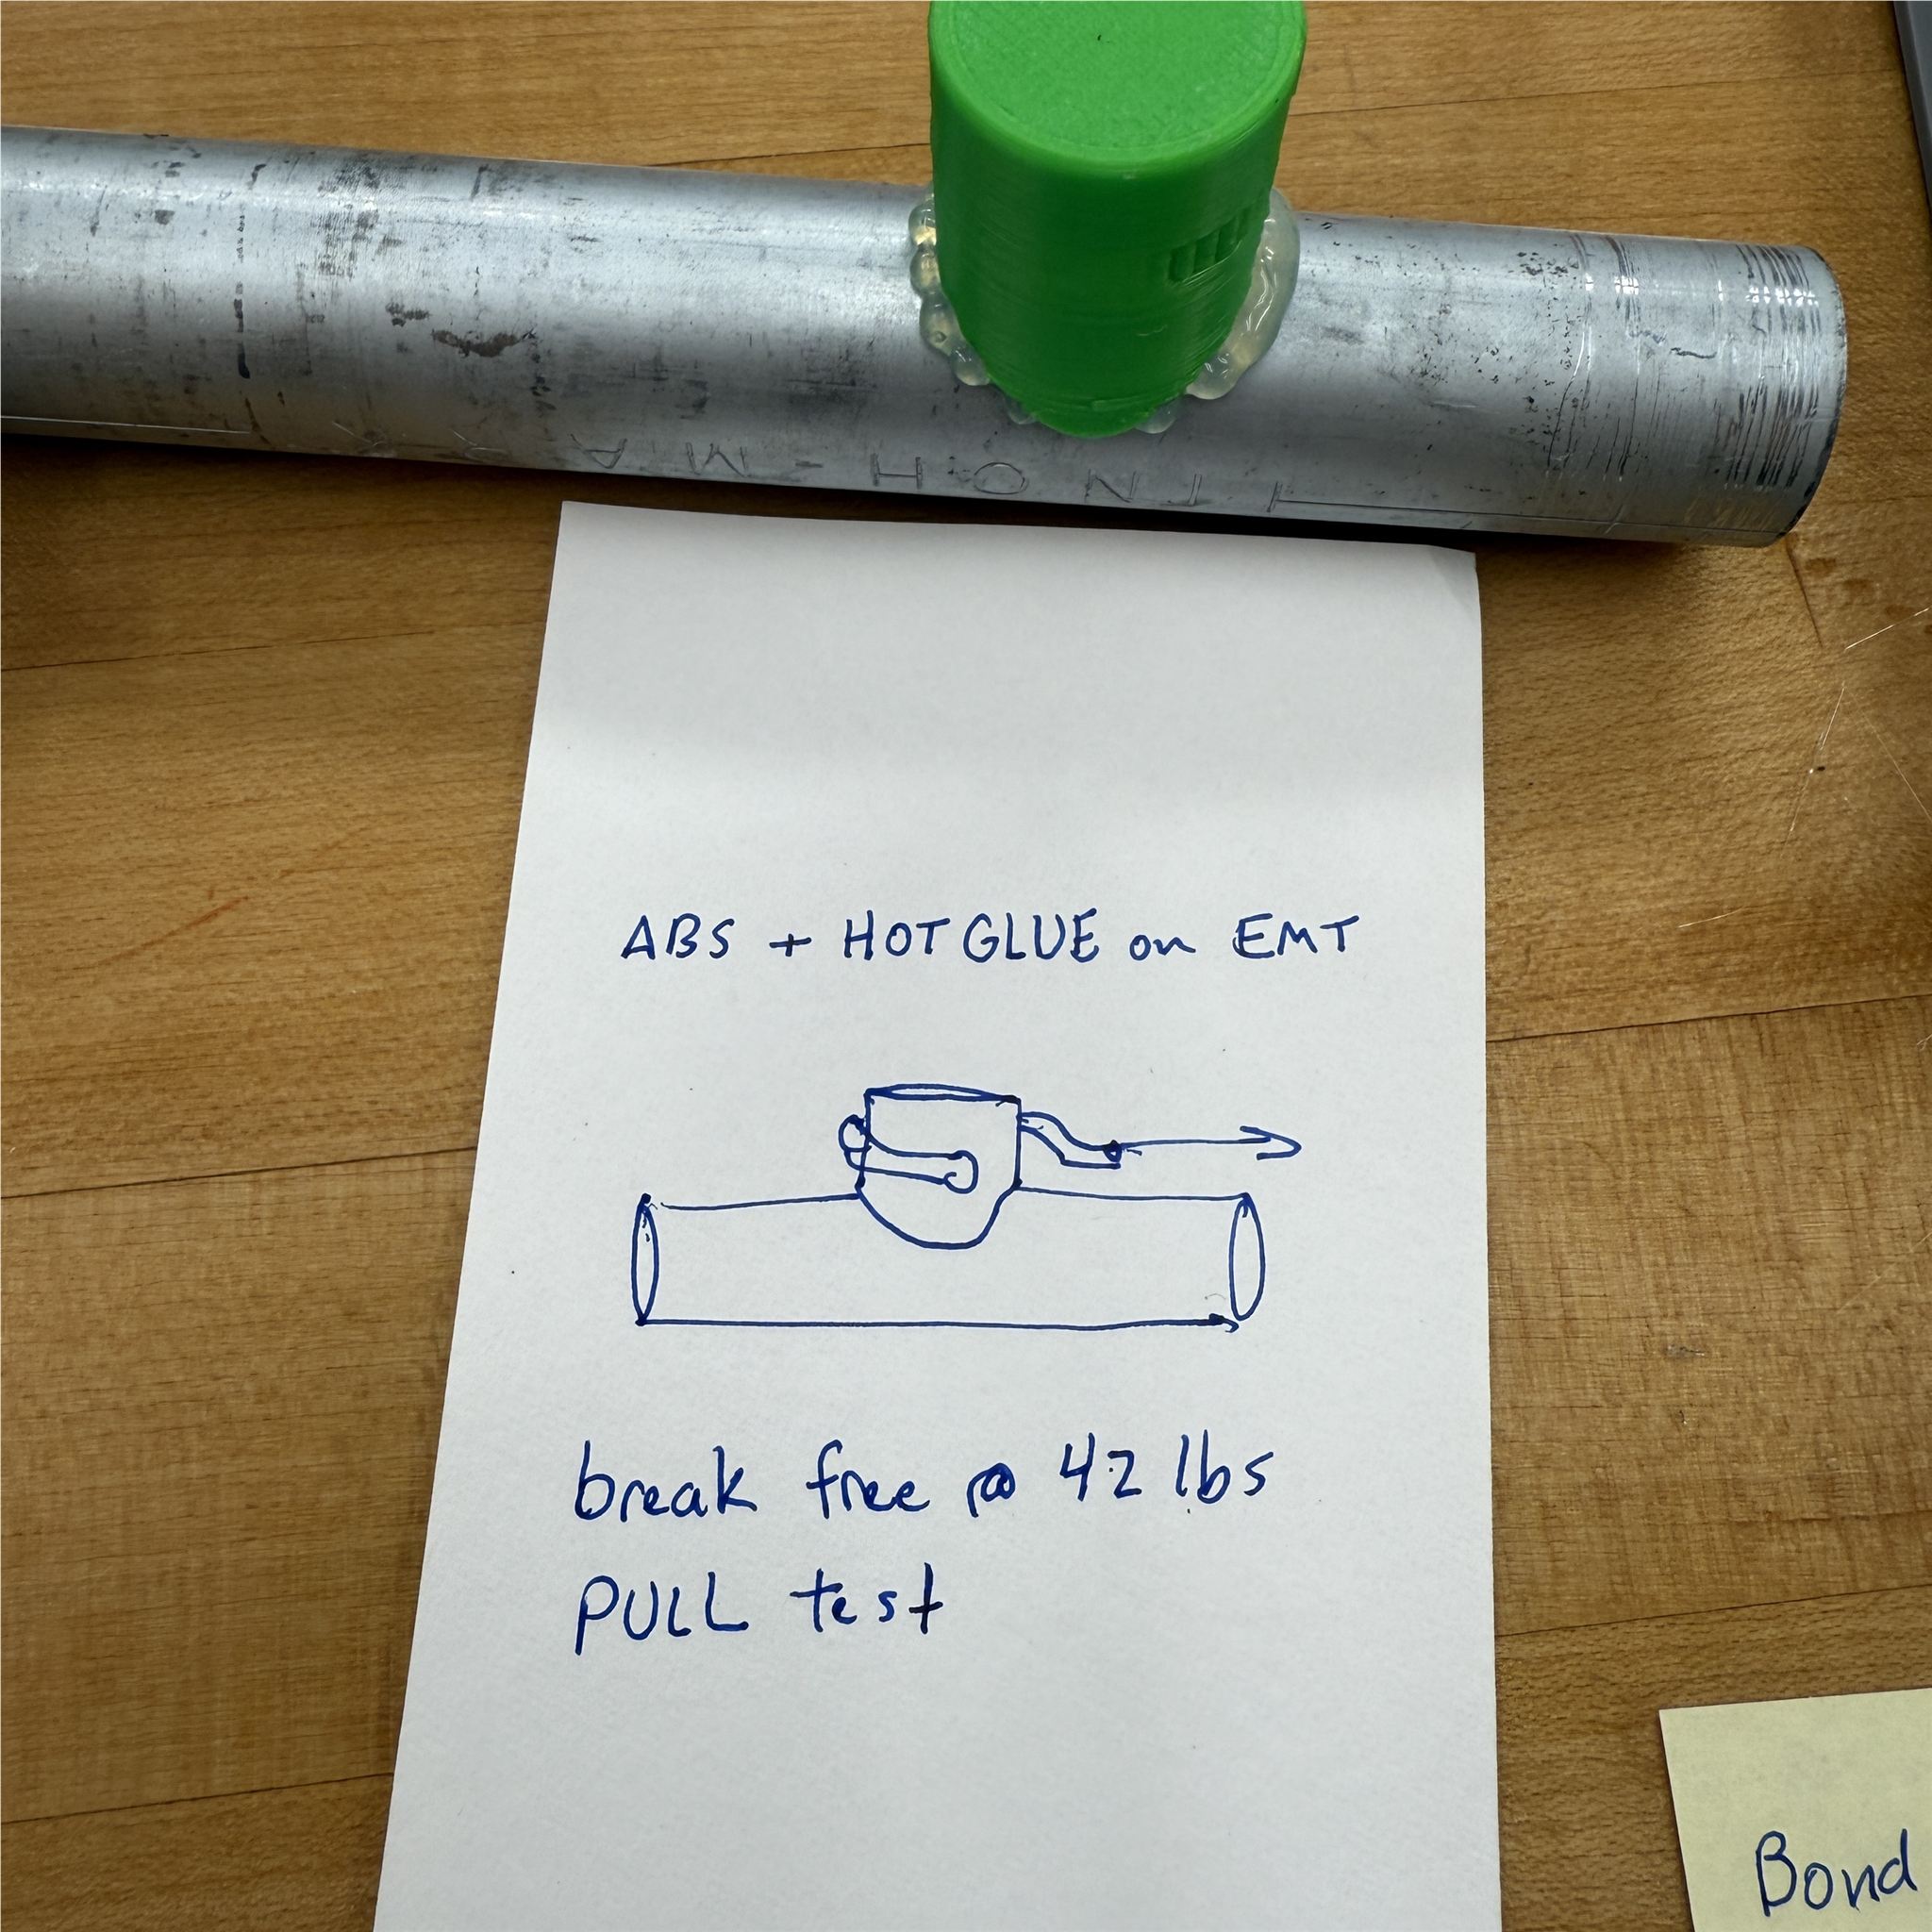 ABS + HOT GLUE on EMT
break free @ 42 lbs
PULL test
Bond